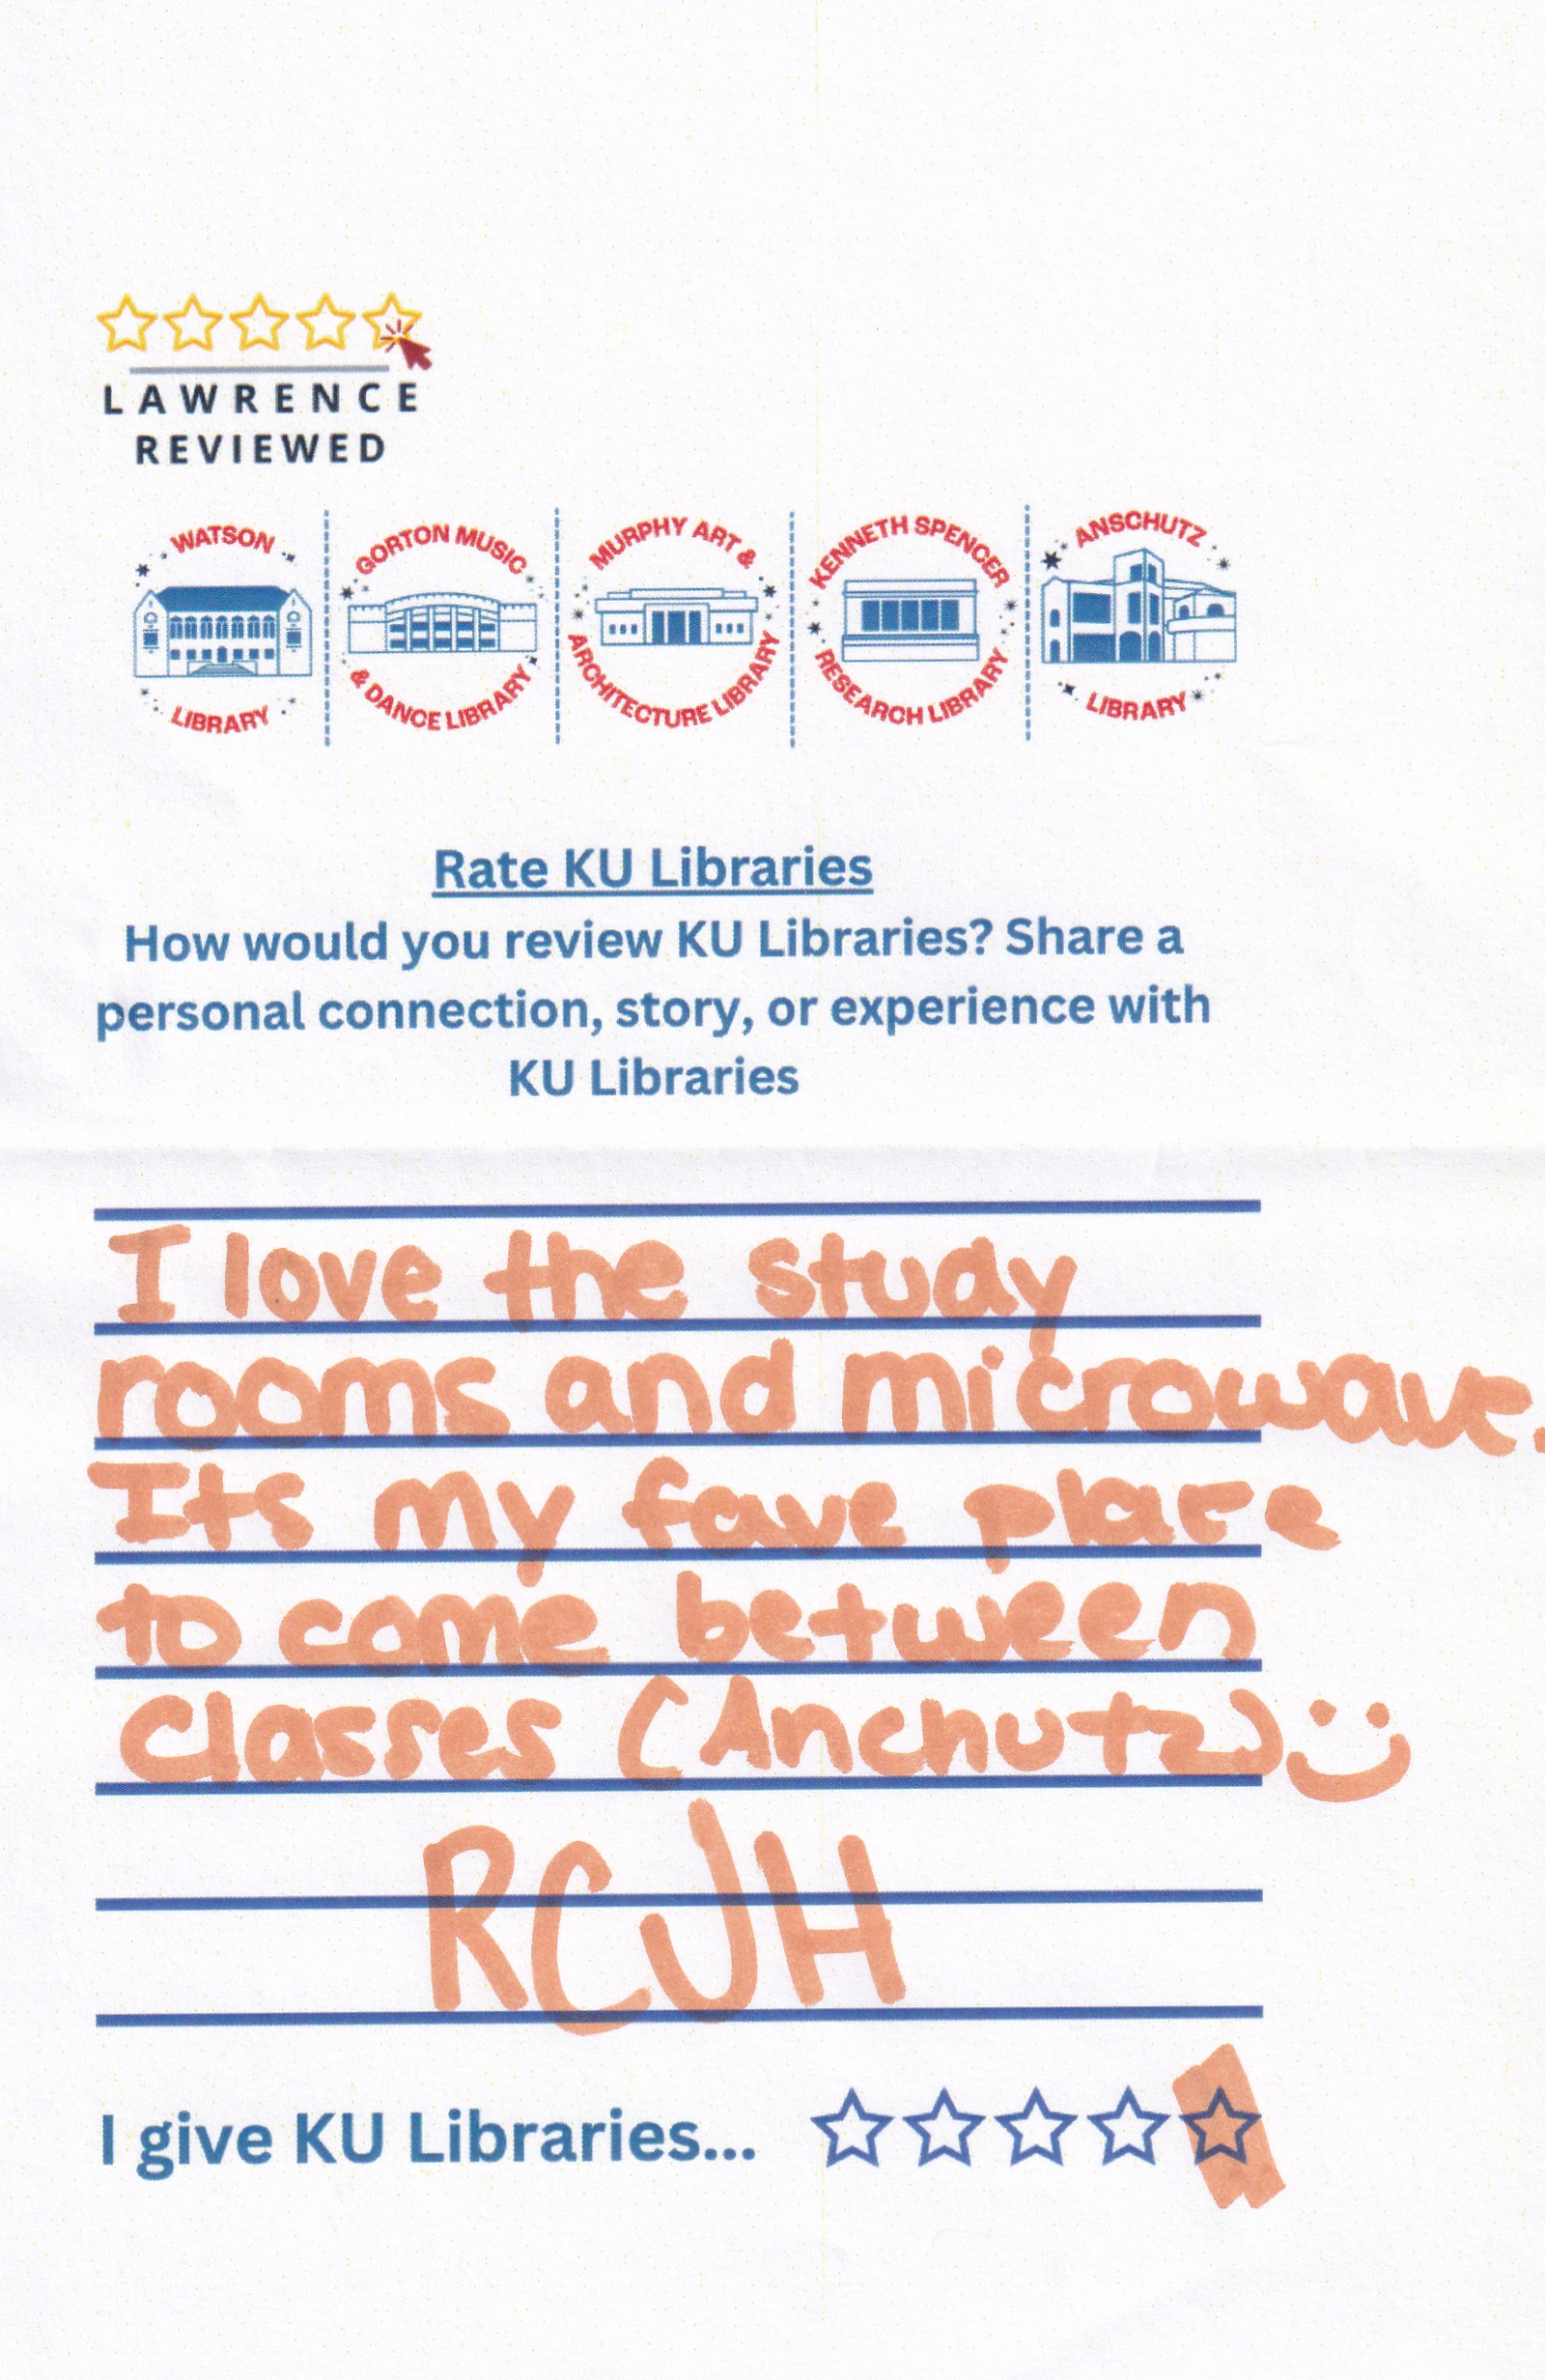 LAWRENCE
REVIEWED
WATSON
LIBRARY
GORTON MUSIC
& DANCE LIBRARY
MURPHY ART &
ARCHITECTURE LIBRARY
KENNETH SPENCER
RESEARCH LIBRARY
ANSCHUTZ
LIBRARY
Rate KU Libraries
How would you review KU Libraries? Share a
personal connection, story, or experience with
KU Libraries
I love the study
rooms and microwave.
Its my fave place
to come between
classes (Anchutz)
RCJH
I give KU Libraries...